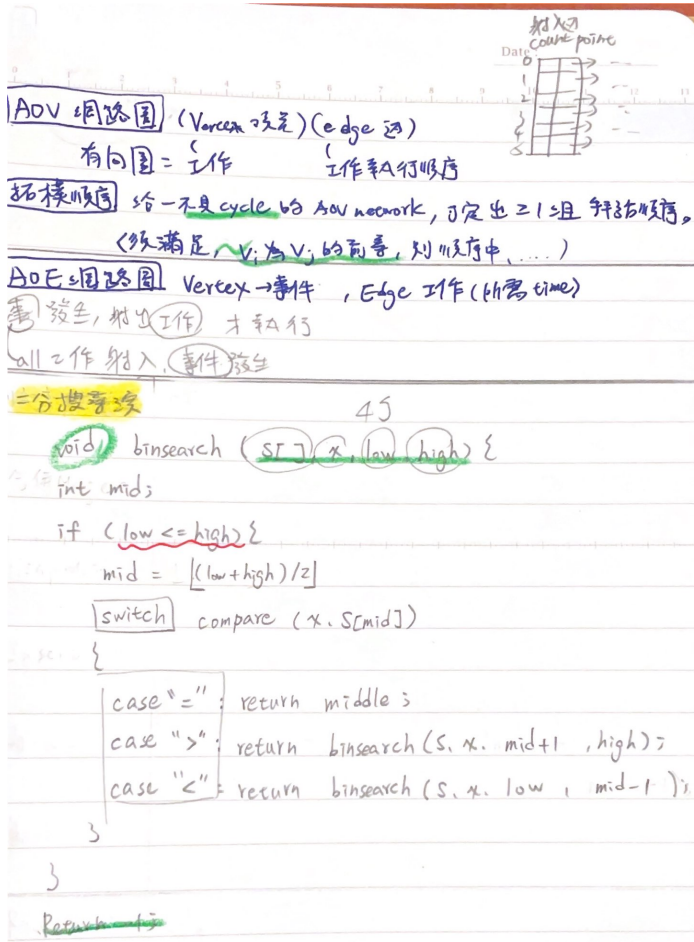 射入之
count point
Date
0
1
2
3
4
5
AOV 網路圖 (Vercex 頂點)(edge 邊)
有向圖 = 工作 工作執行順序
拓樸順序 給一不具 cycle 的 AOV network, 可定出 ≥1組 拜訪順序。
(須滿足, Vi 為 Vj 的前導, 則順序中, ....)
AOE 網路圖 Vertex → 事件 , Edge 工作(所需 time)
事 發生, 射出 工作 才執行
all 工作 射入, 事件 發生
二分搜尋法 45
void binsearch ( S[ ], x, low, high) {
int mid;
if (low <= high){
mid = ⌊(low+high)/2⌋
switch compare (x. S[mid])
{
case "=" : return middle ;
case ">" : return binsearch (S, x. mid+1 , high);
case "<" : return binsearch (S, x. low , mid-1 );
}
}